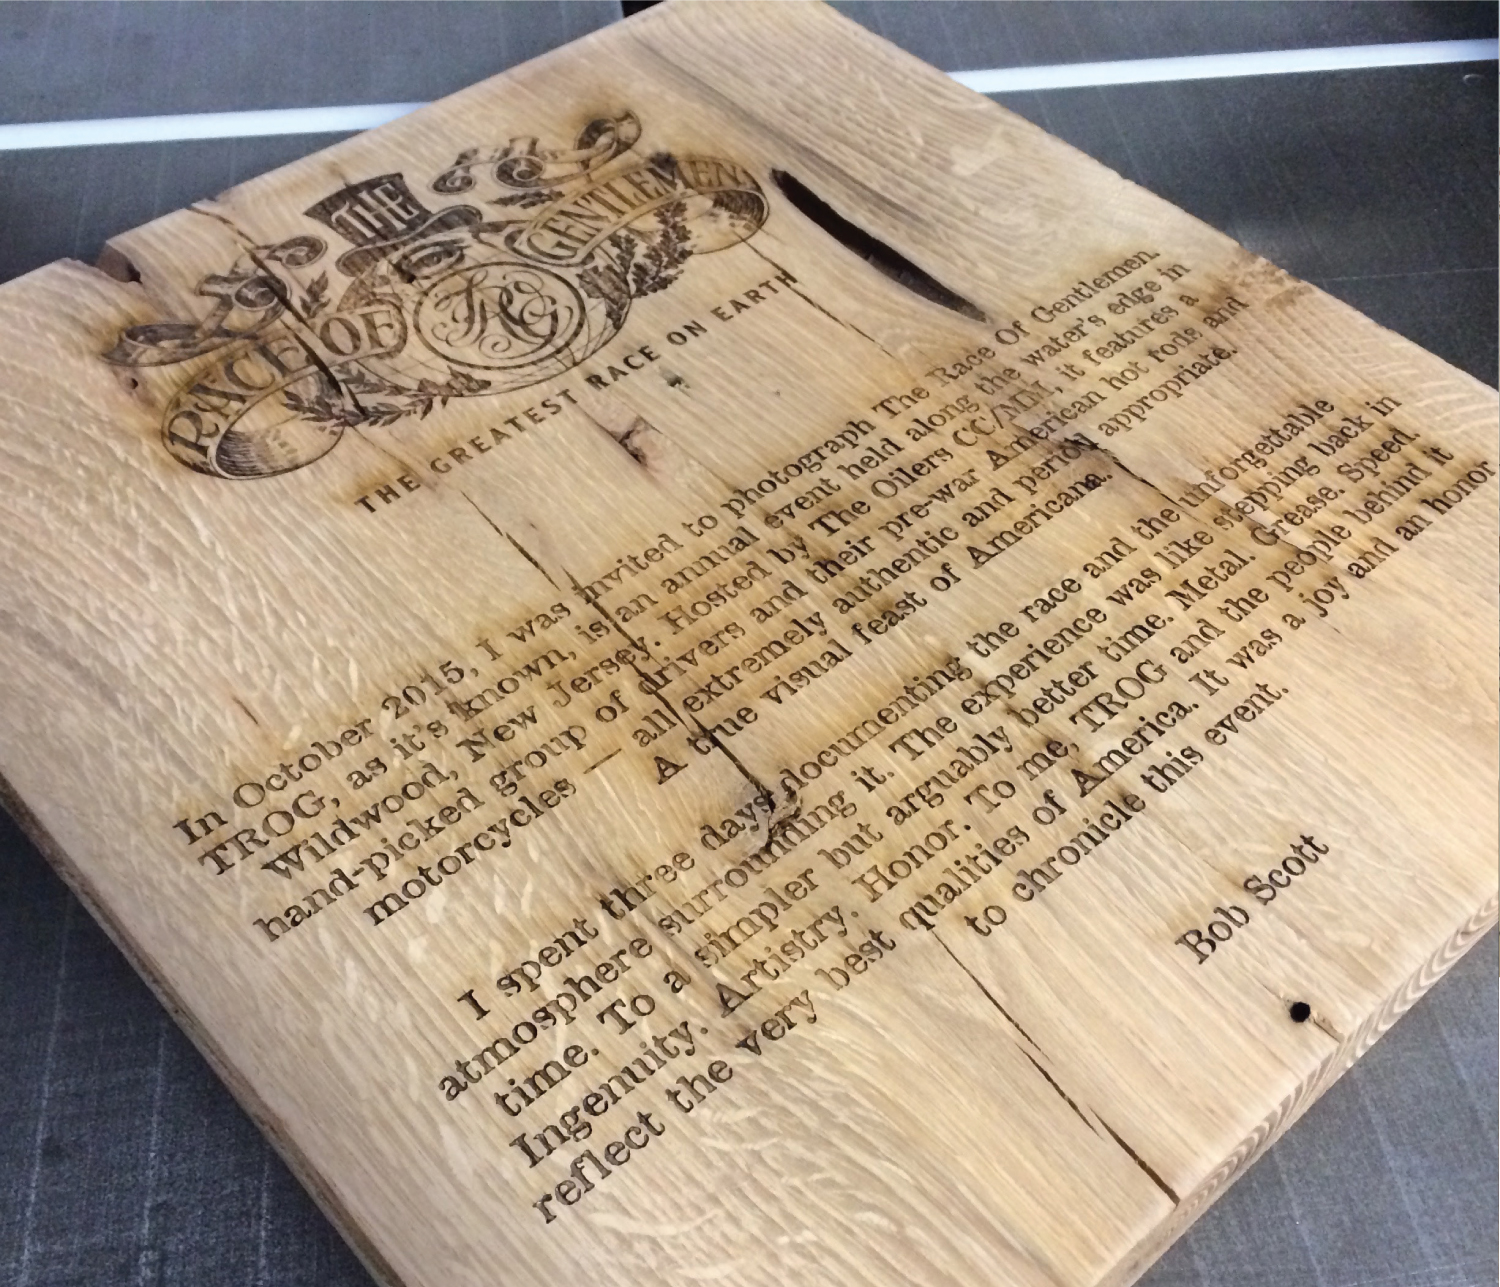 THE
RACE OF GENTLEMEN
TROG
THE GREATEST RACE ON EARTH
In October 2015, I was invited to photograph The Race Of Gentlemen.
TROG, as it's known, is an annual event held along the water's edge in
Wildwood, New Jersey. Hosted by The Oilers CC/MM, it features a
hand-picked group of drivers and their pre-war American hot rods and
motorcycles — all extremely authentic and period appropriate.
A true visual feast of Americana.
I spent three days documenting the race and the unforgettable
atmosphere surrounding it. The experience was like stepping back in
time. To a simpler but arguably better time. Metal. Grease. Speed.
Ingenuity. Artistry. Honor. To me, TROG and the people behind it
reflect the very best qualities of America. It was a joy and an honor
to chronicle this event.
Bob Scott